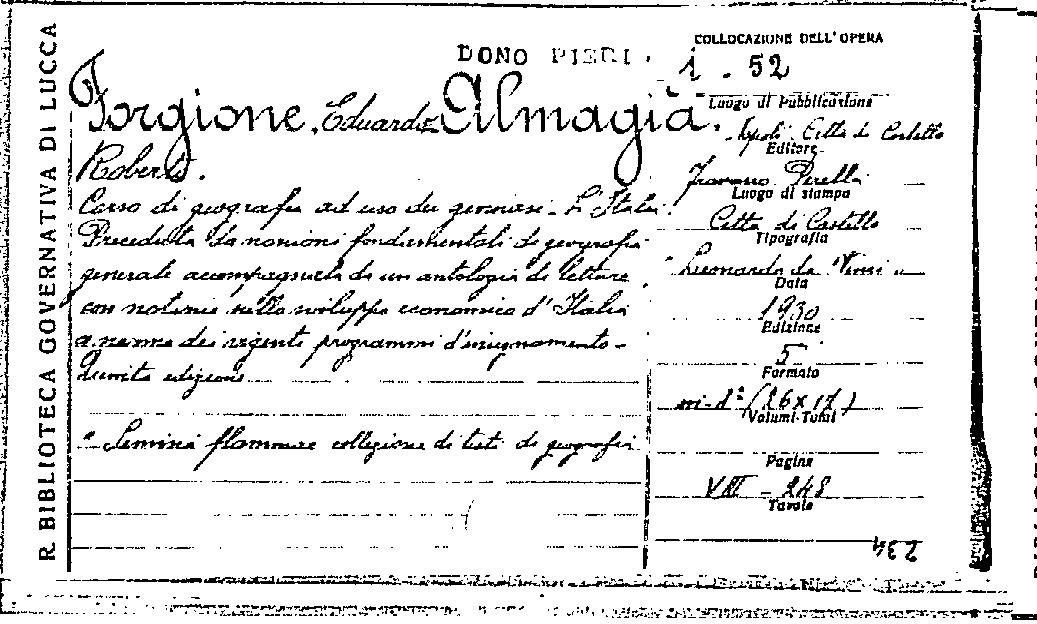 R. BIBLIOTECA GOVERNATIVA DI LUCCA
DONO PIERI.
Forgione, Eduardo Almagià.
Roberto.
Corso di geografia ad uso dei ginnasi - L'Italia.
Preceduta da nozioni fondamentali di geografia
generale accompagnata da un antologia di letture
con notizie sullo sviluppo economico d'Italia
a norma dei vigenti programmi d'insegnamento -
Quinta edizione
" Semina flammae collezione di testi di geografia
COLLOCAZIONE DELL'OPERA
i. 52
Luogo di Pubblicazione
Napoli - Città di Castello
Editore
Perrella
Luogo di stampa
Città di Castello
Tipografia
"Leonardo da Vinci"
Data
1930
Edizione
5
Formato
in-8° (26x17)
Volumi-Tomi
Pagine
VIII - 248
Tavole
234